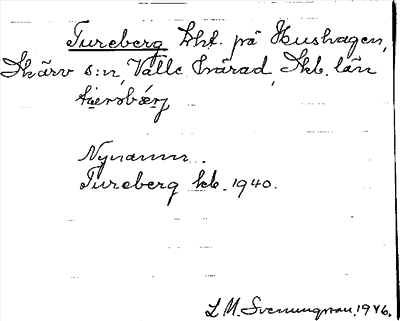 Tureberg Lht. på Hushagen,
Skärv s:n, Valle härad, Skb. län
Nynamn.
Tureberg kb. 1940.
L. M. Svenungsson. 1946.